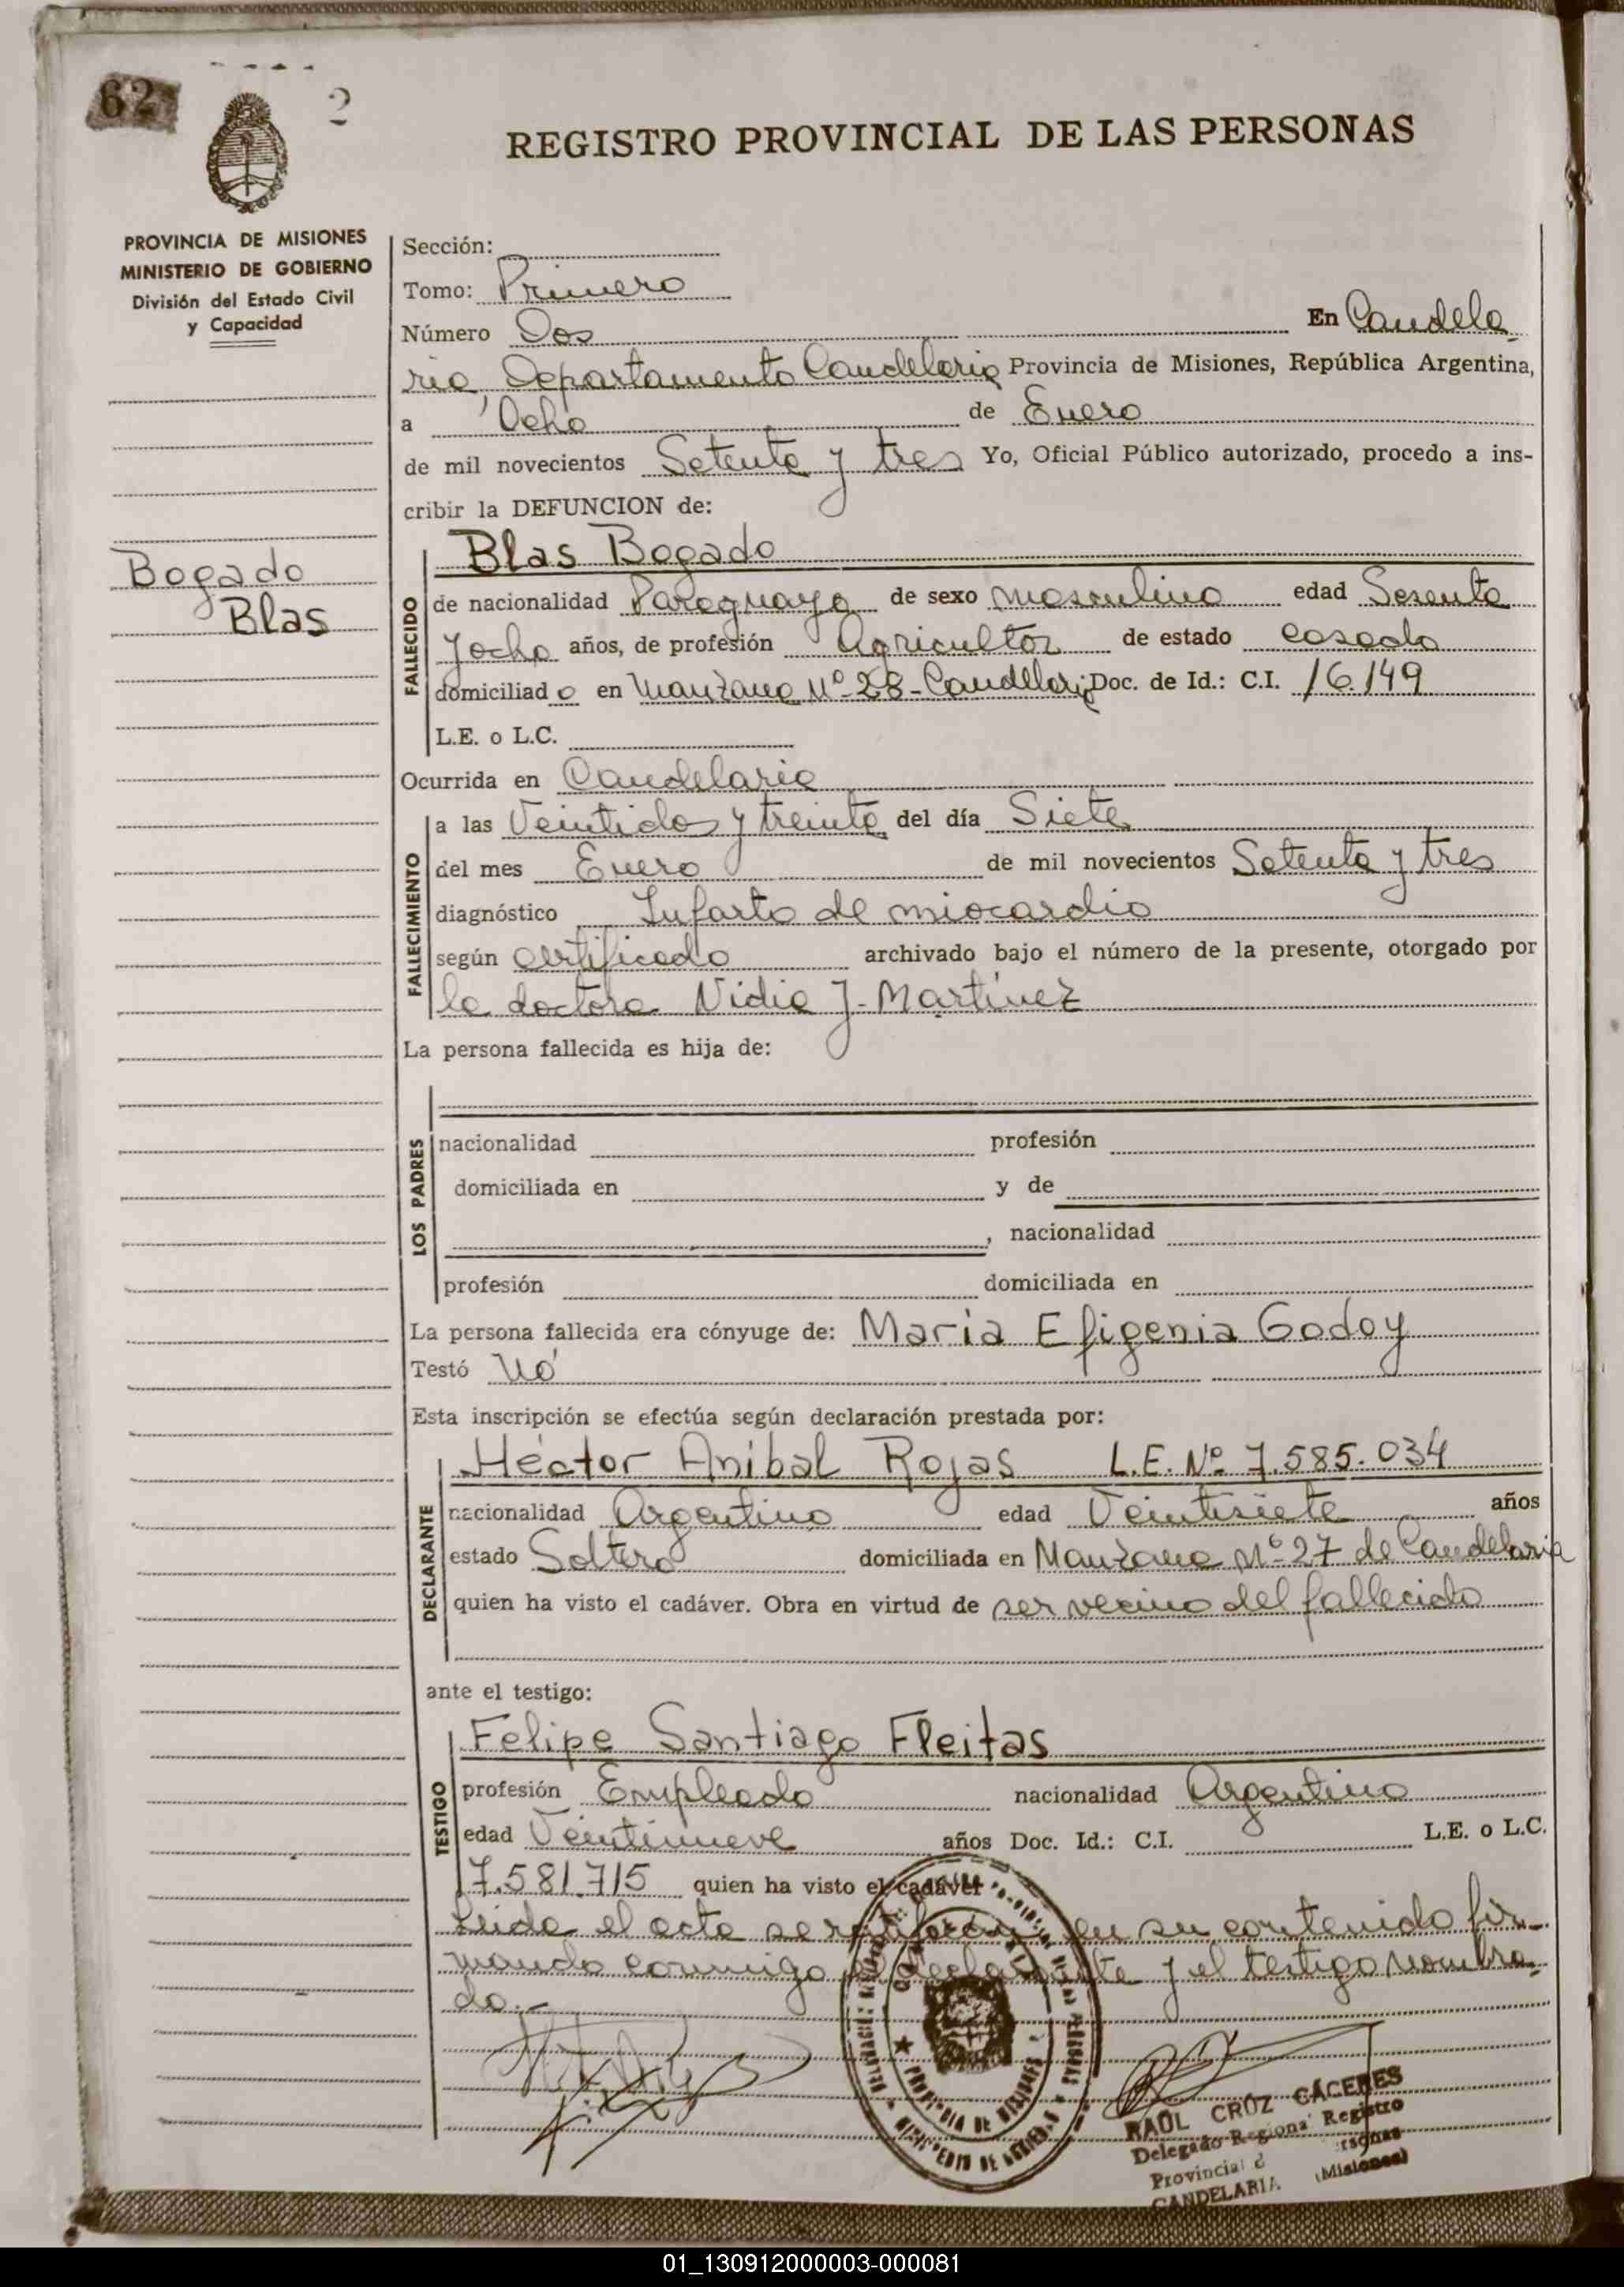 62 2
REGISTRO PROVINCIAL DE LAS PERSONAS
PROVINCIA DE MISIONES
MINISTERIO DE GOBIERNO
División del Estado Civil
y Capacidad
Sección:
Tomo: Primero
Número Dos En Candela
ria, Departamento Candelaria Provincia de Misiones, República Argentina,
a Ocho de Enero
de mil novecientos Setenta y tres Yo, Oficial Público autorizado, procedo a ins-
cribir la DEFUNCION de:
Bogado
Blas
FALLECIDO
Blas Bogado
de nacionalidad Paraguaya de sexo masculino edad Sesenta
y ocho años, de profesión Agricultor de estado casado
domiciliado en Manzana Nº 28 - Candelaria Doc. de Id.: C.I. 16.149
L.E. o L.C.
Ocurrida en Candelaria
FALLECIMIENTO
a las Veintidos y treinta del día Siete
del mes Enero de mil novecientos Setenta y tres
diagnóstico Infarto de miocardio
según certificado archivado bajo el número de la presente, otorgado por
la doctora Nidia J. Martínez
La persona fallecida es hija de:
LOS PADRES
nacionalidad profesión
domiciliada en y de
, nacionalidad
profesión domiciliada en
La persona fallecida era cónyuge de: María Efigenia Godoy
Testó Nó
Esta inscripción se efectúa según declaración prestada por:
DECLARANTE
Héctor Anibal Rojas L.E. Nº 7.585.034
nacionalidad Argentino edad Veintisiete años
estado Soltero domiciliada en Manzana Nº 27 de Candelaria
quien ha visto el cadáver. Obra en virtud de ser vecino del fallecido
ante el testigo:
TESTIGO
Felipe Santiago Fleitas
profesión Empleado nacionalidad Argentino
edad Veintinueve años Doc. Id.: C.I. L.E. o L.C.
7.581.715 quien ha visto el cadáver
Leida el acta se ratifican en su contenido fir-
mando conmigo el declarante y el testigo nombra-
do.-
RAÚL CRUZ CÁCERES
Delegado Regional Registro
Provincial d ersonas
CANDELARIA (Misiones)
01_130912000003-000081